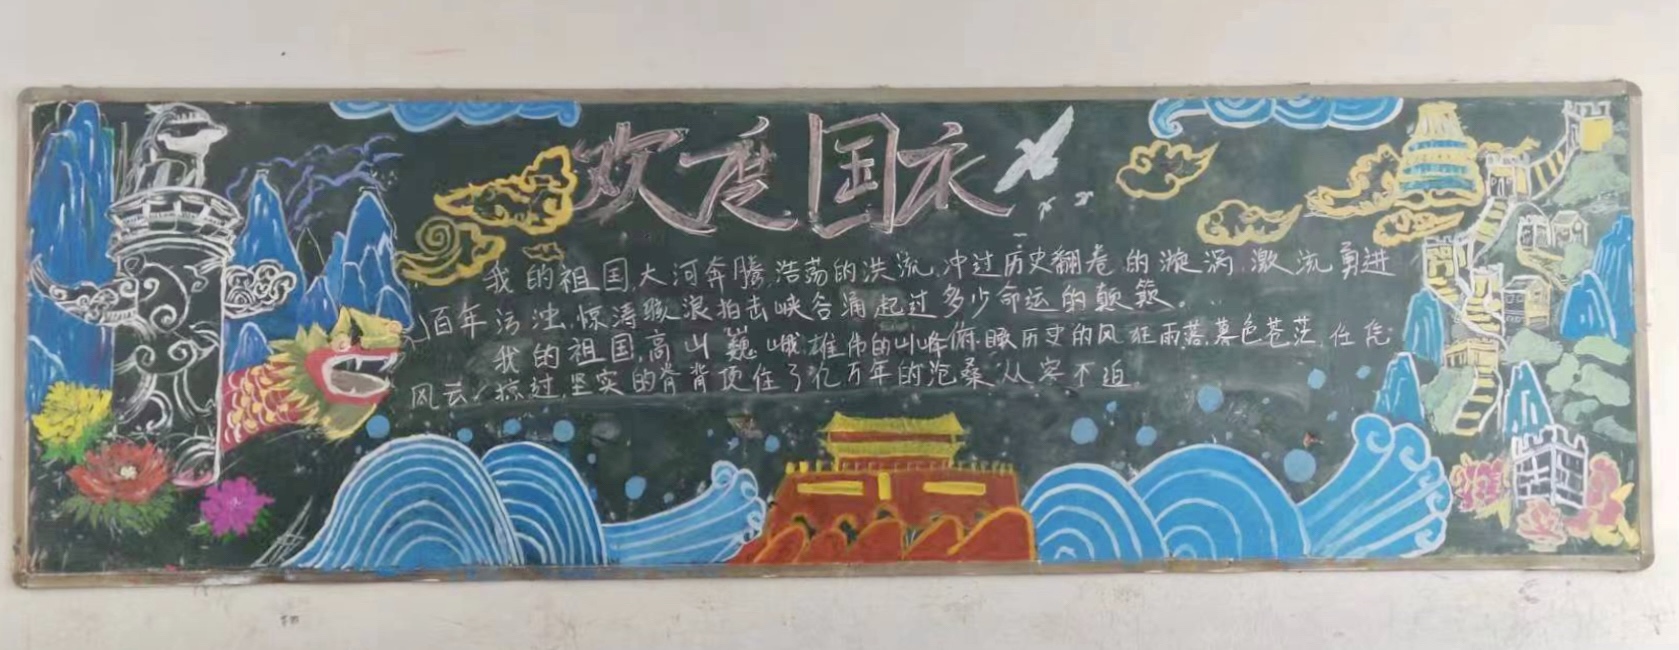 欢度国庆
我的祖国,大河奔腾,浩荡的洪流,冲过历史翻卷的漩涡,激流勇进
百年污浊,惊涛骇浪拍击峡谷涌起过多少命运的颠簸。
我的祖国,高山巍峨,雄伟的山峰俯瞰历史的风狂雨落,暮色苍茫,任凭
风云掠过,坚实的脊背顶住了亿万年的沧桑从容不迫